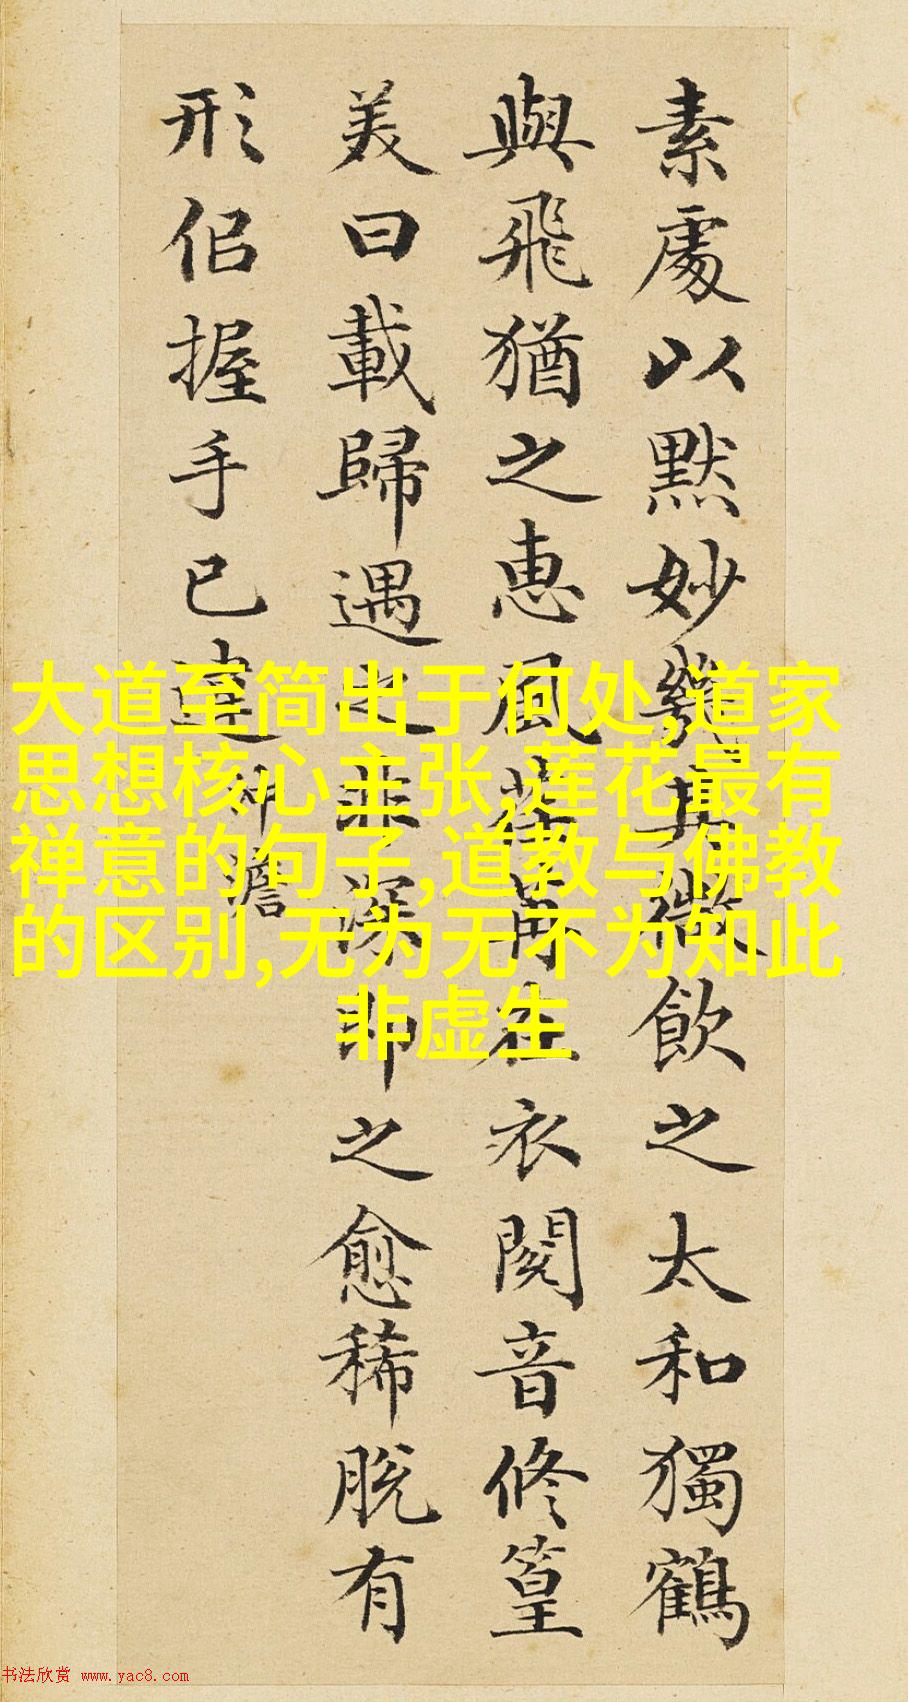 素處以默妙幾其微飲之太和獨鶴
與飛猶之惠風荏苒在衣閱音修篁
美曰載歸遇之非深即之愈稀脫有
形佀握手已違 沖澹
大道至简出于何处,道家
思想核心主张,莲花最有
禅意的句子,道教与佛教
的区别,无为无不为知此
非虚生
书法欣赏 www.yac8.com